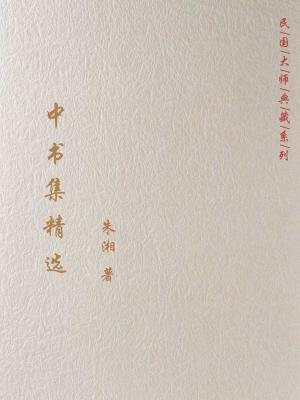 民国大师典藏系列
中书集精选
朱湘 著